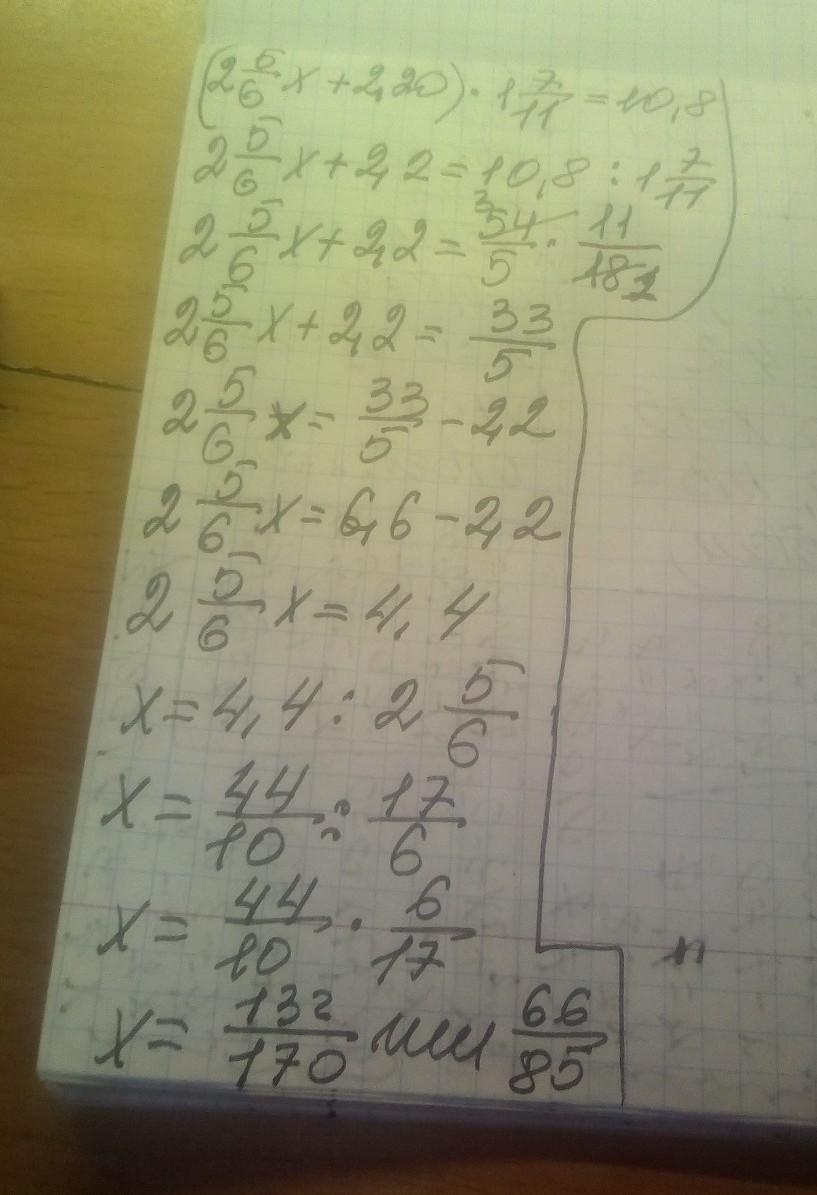 (2 5/6 x + 2,20) · 1 7/11 = 10,8
2 5/6 x + 2,2 = 10,8 : 1 7/11
2 5/6 x + 2,2 = 54/5 · 11/18 3 1
2 5/6 x + 2,2 = 33/5
2 5/6 x = 33/5 - 2,2
2 5/6 x = 6,6 - 2,2
2 5/6 x = 4,4
x = 4,4 : 2 5/6
x = 44/10 : 17/6
x = 44/10 · 6/17
x = 132/170 или 66/85